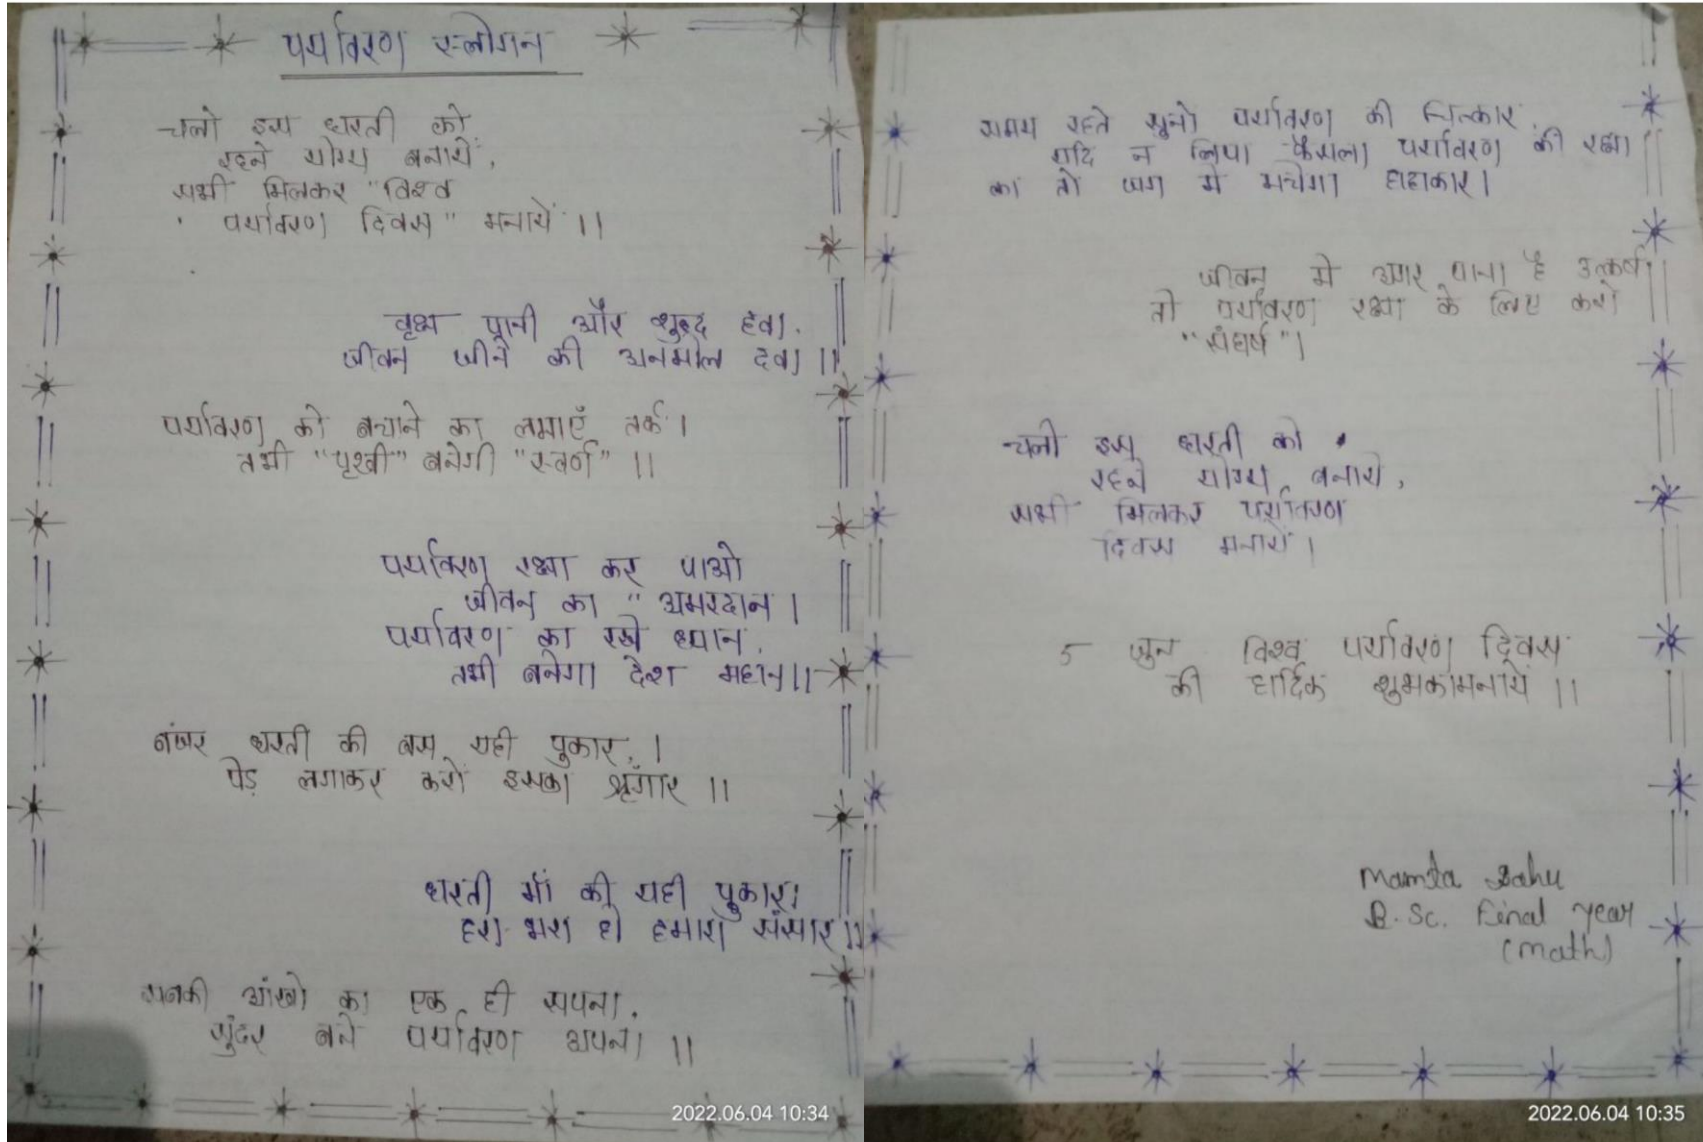 पर्यावरण स्लोगन
चलो इस धरती को
रहने योग्य बनायें,
सभी मिलकर "विश्व
पर्यावरण दिवस" मनायें ।।
वृक्ष पानी और शुद्ध हवा,
जीवन जीने की अनमोल दवा ।।
पर्यावरण को बचाने का लगाएँ तर्क ।
तभी "पृथ्वी" बनेगी "स्वर्ण" ।।
पर्यावरण रक्षा कर पाओ
जीवन का " अमरदान ।
पर्यावरण का रखे ध्यान,
तभी बनेगा देश महान ।।
बंजर धरती की बस यही पुकार, ।
पेड़ लगाकर करों इसका श्रृंगार ।।
धरती माँ की यही पुकार।
हरा भरा हो हमारा संसार ।।
सबकी आंखो का एक ही सपना,
सुंदर बने पर्यावरण अपना ।।
2022.06.04 10:34
समय रहते सुनो पर्यावरण की चित्कार,
यदि न लिया फैसला पर्यावरण की रक्षा
का तो जग मे मचेगा हाहाकार।
जीवन मे अगर पाना है उत्कर्ष
तो पर्यावरण रक्षा के लिए करो
"संघर्ष"।
चलो इस धरती को
रहने योग्य बनाये,
सभी मिलकर पर्यावरण
दिवस मनायें।
5 जुन विश्व पर्यावरण दिवस
की हार्दिक शुभकामनायें ।।
Mamta Sahu
B.Sc. Final year
(math)
2022.06.04 10:35